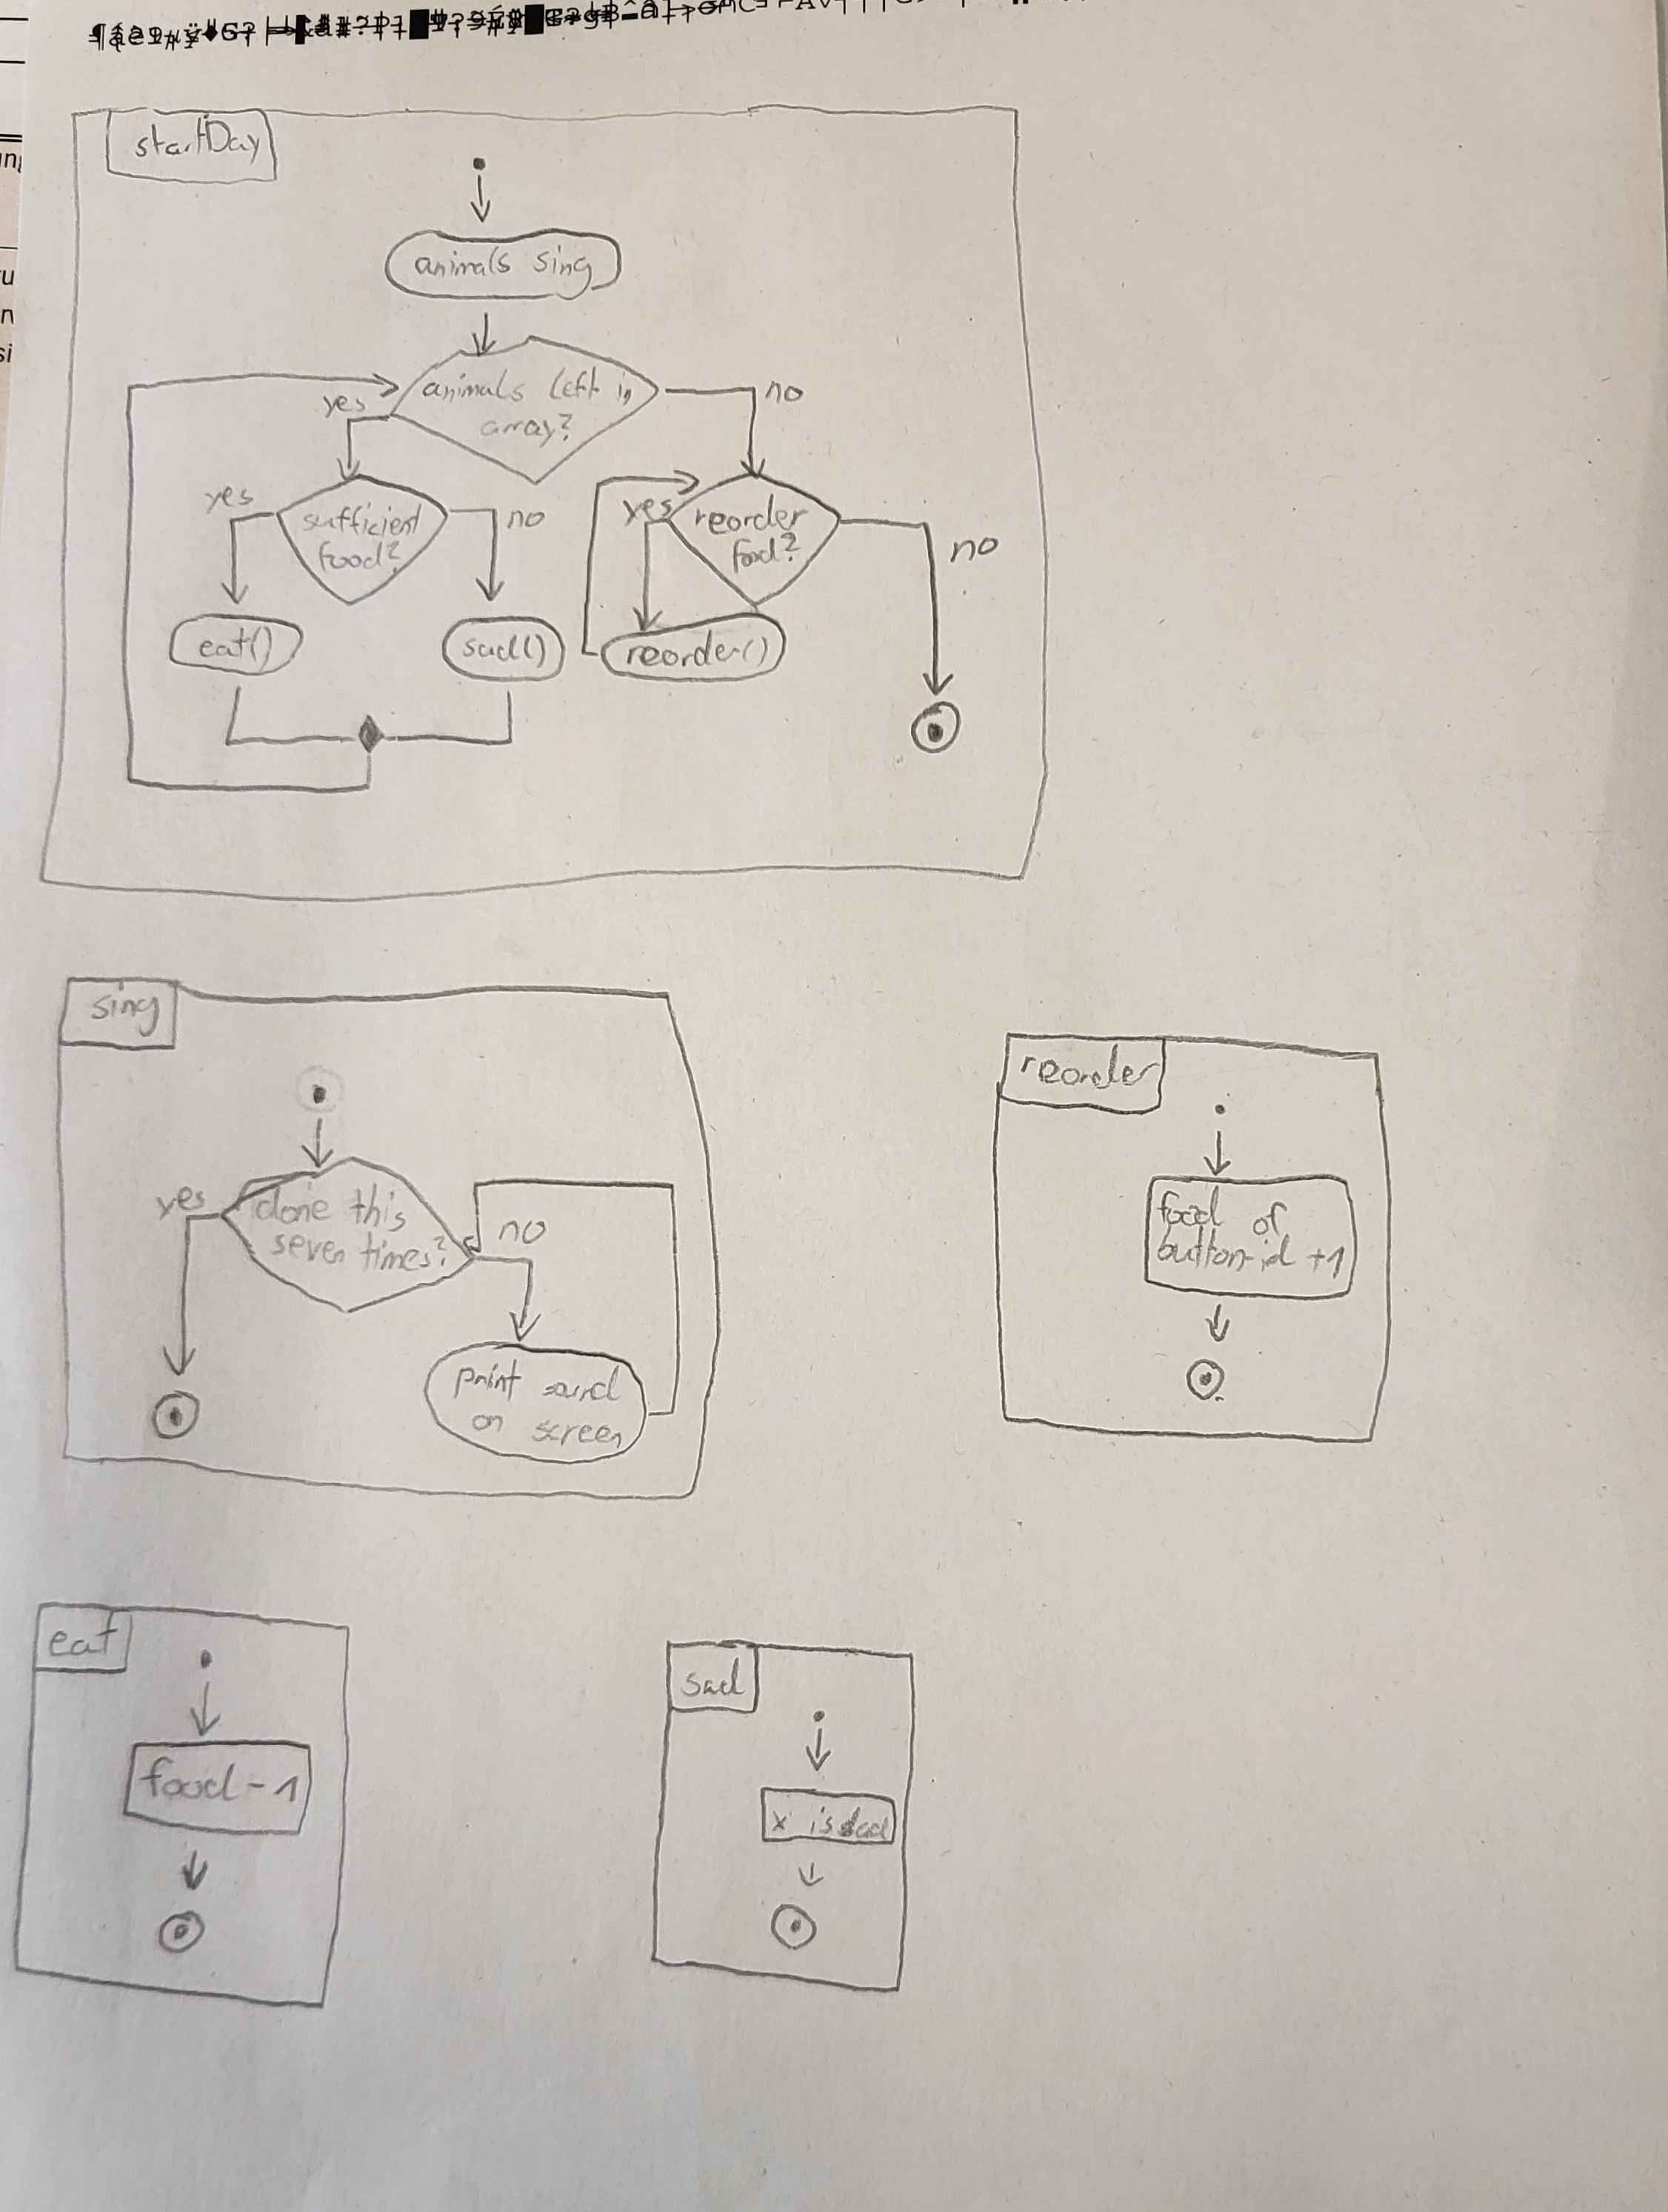 startDay
animals sing
animals left in
array?
yes
no
yes
sufficient
food?
no
yes
reorder
food?
no
eat()
sad()
reorder()
sing
yes
done this
seven times?
no
print sound
on screen
reorder
food of
button-id +1
eat
food-1
sad
x is sad